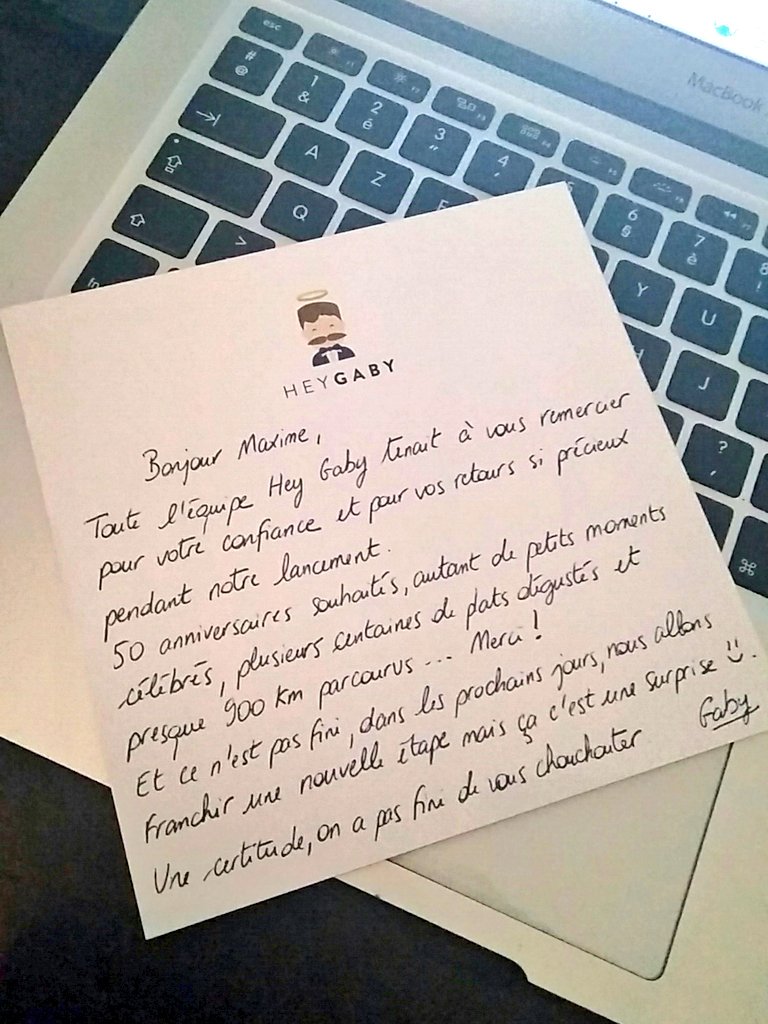 MacBook
esc
F1 F2 F3 F4 F5 F6 F7
# @ 1 & 2 é 3 " 4 ' 5 6 § 7 è 8 !
A Z E Y U
Q H J
> ? ,
fn ⌘
HEYGABY
Bonjour Maxime,
Toute l'équipe Hey Gaby tenait à vous remercier
pour votre confiance et pour vos retours si précieux
pendant notre lancement.
50 anniversaires souhaités, autant de petits moments
célébrés, plusieurs centaines de plats dégustés et
presque 900 km parcourus ... Merci !
Et ce n'est pas fini, dans les prochains jours, nous allons
franchir une nouvelle étape mais ça c'est une surprise :).
Une certitude, on a pas fini de vous chouchouter
Gaby